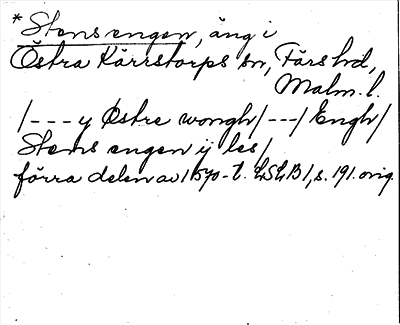 * Stens engen, äng i
Östra Kärrstorps sn, Färs hd,
Malm. l.
/--- y Østre wongh/---/Engh/
Stens engen ij les/
förra delen av 1570-t. LSLB 1, s. 191. orig.